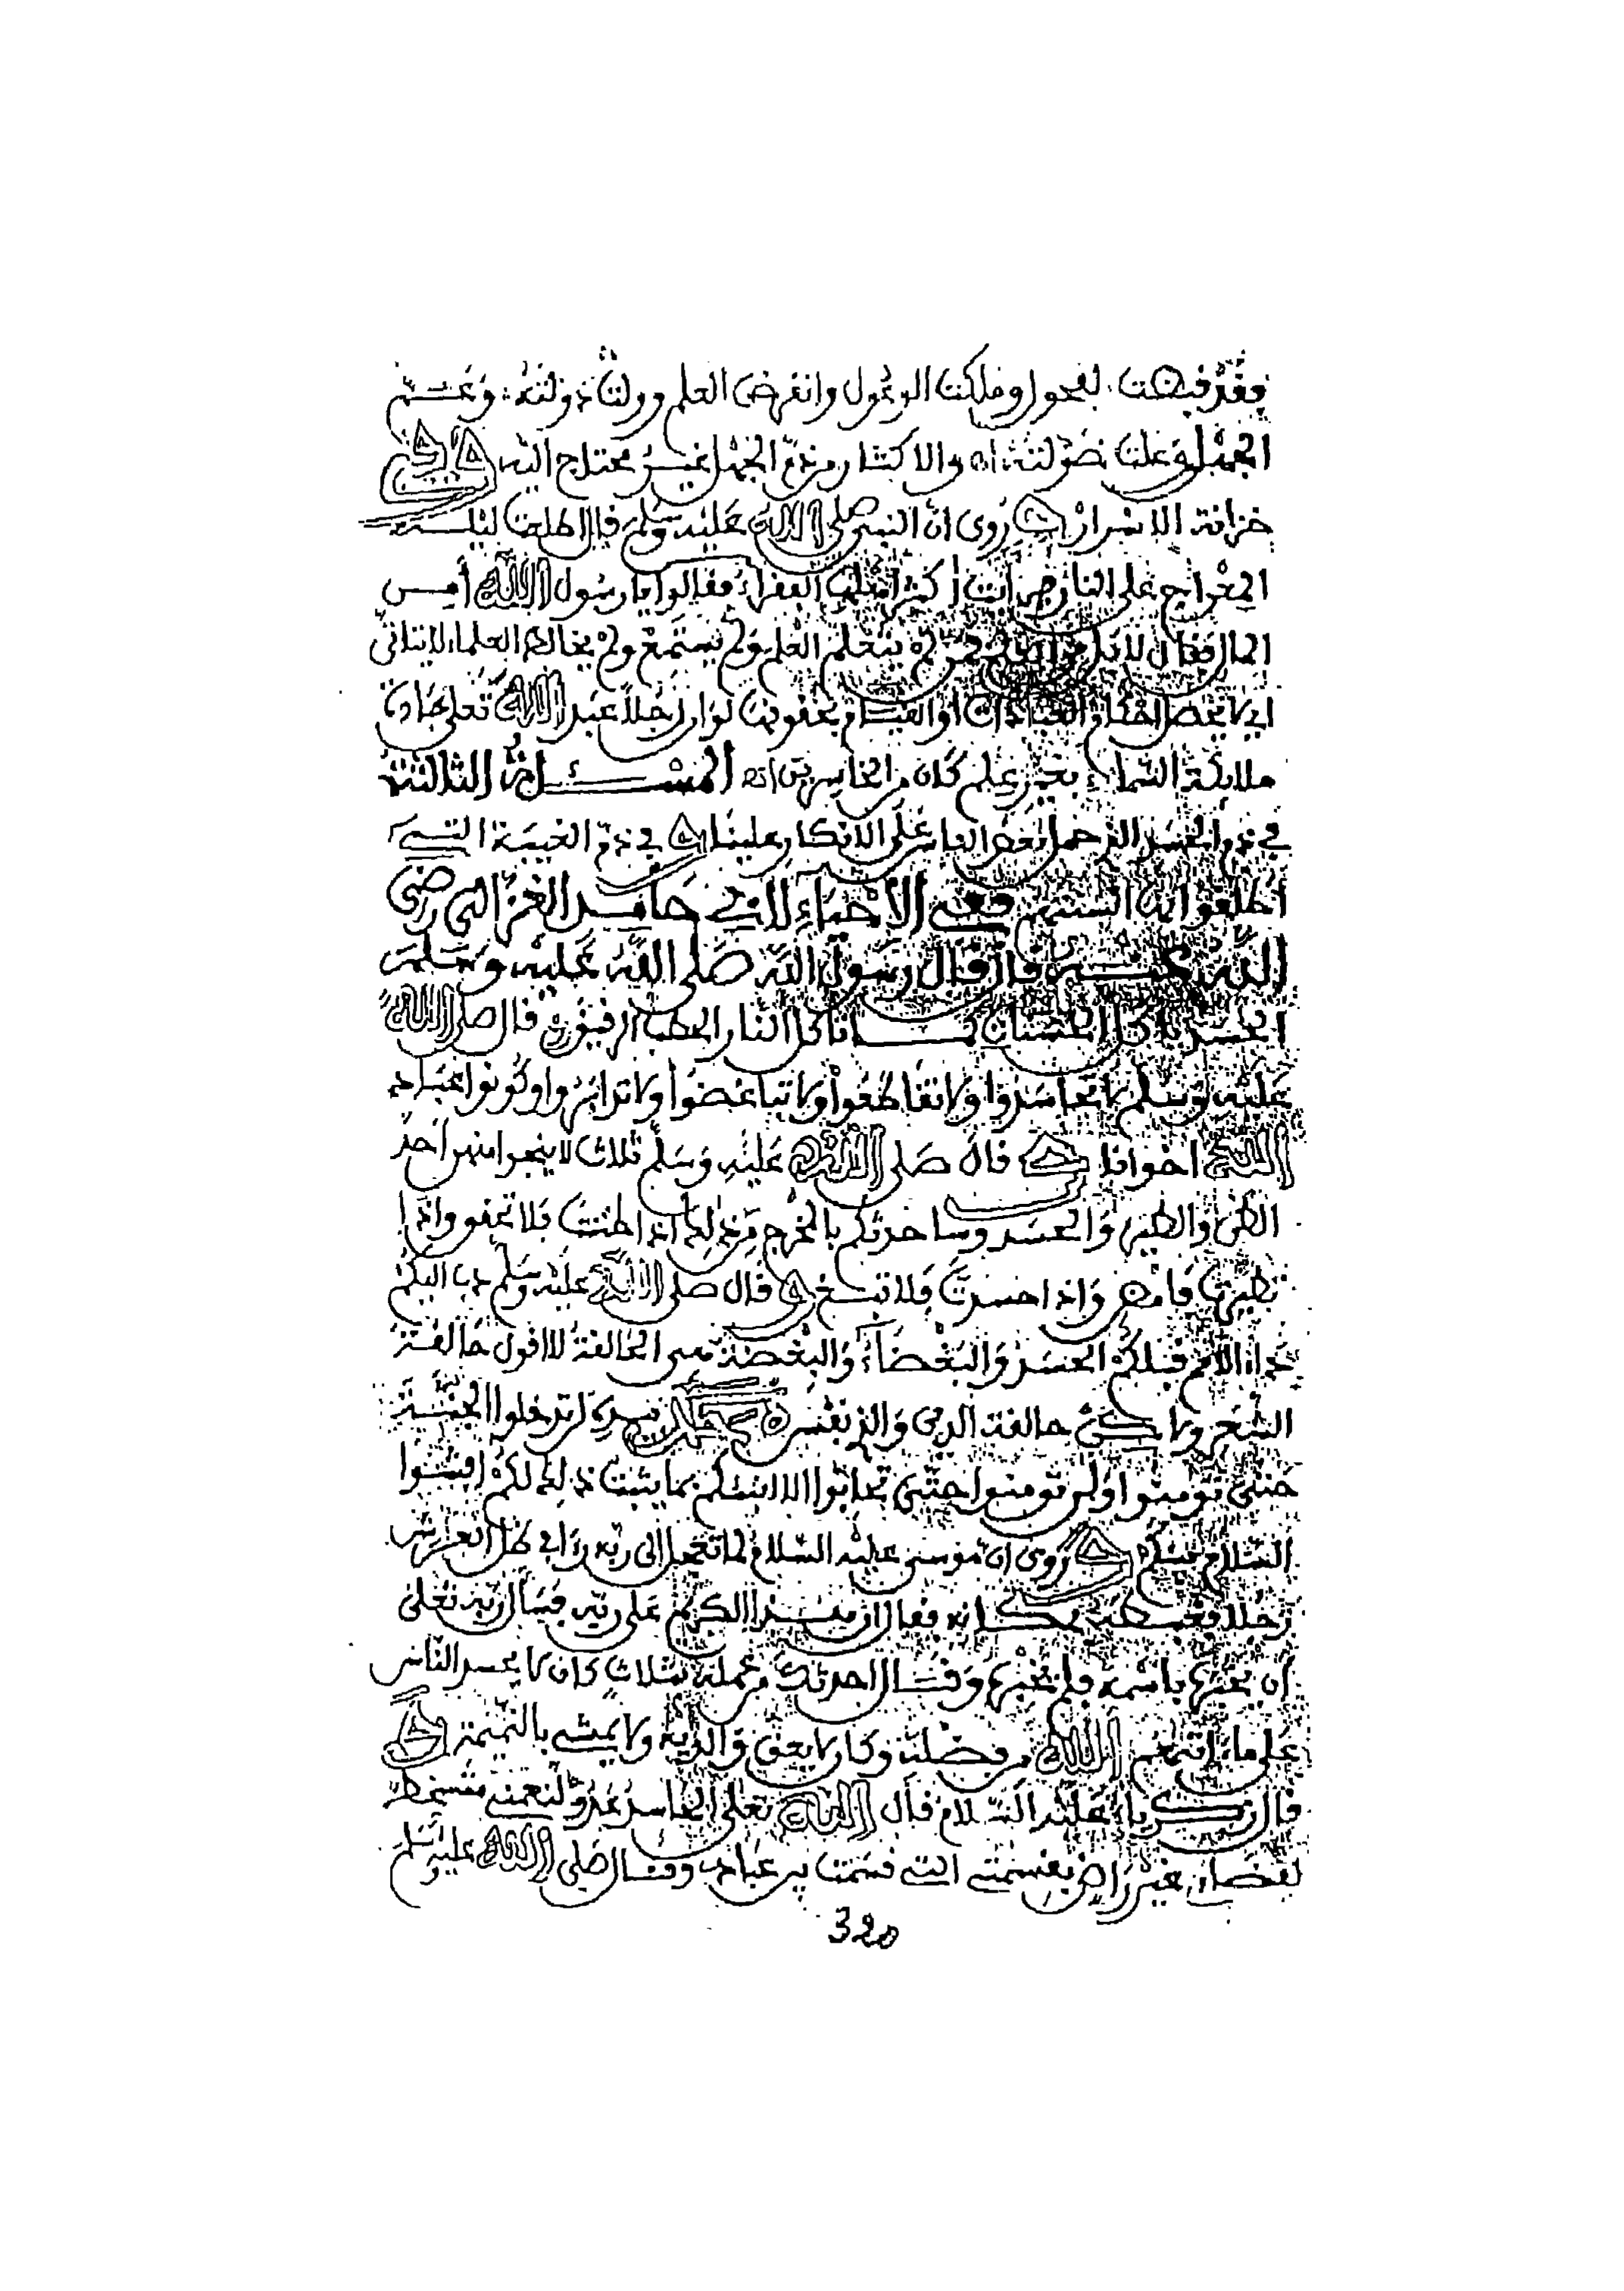 فقد فبضت الفحول وهلكت الوعول وانقرض العلم وولت دولته وعم
الجهل وعلت صولته اه والاكثار من ذم الجهل غير محتاج اليه وفي
خزانة الاسرار روى ان النبي صلى الله عليه وسلم قال اطلعت ليلة
المعراج على النار فرأيت اكثر اهلها الفقراء فقالوا يا رسول الله أمن
المال فقال لا بل من العلم فمن لم يتعلم العلم ولم يستمع ولم يخالط العلماء لا يتأتى
احكام العبادات او القيام بحقوقها لو ان رجلا عبد الله تعلى عبادة
ملائكة السماء بغير علم كان من الخاسرين انه المسئلة الثالثة
في ذم الحسد الذي حمل بعض الناس على الانكار علينا وفي ذم الغيبة التي
اطلقوا بها السنتهم ففي الاحياء لابي حامد الغزالي رضي
الله عنه قال قال رسول الله صلى الله عليه وسلم
الحسد يأكل الحسنات كما تأكل النار الحطب الرفيق وقال صلى الله
عليه وسلم لا تحاسدوا ولا تقاطعوا ولا تباغضوا ولا تدابروا وكونوا عباد
الله اخوانا وقال صلى الله عليه وسلم ثلاث لا ينجوا منهن احد
الظن والطيرة والحسد وساحدثكم بالمخرج من ذلك اذا ظننت فلا تحقق واذا
تطيرت فامض واذا حسدت فلا تبغ وقال صلى الله عليه وسلم دب اليكم
داء الامم قبلكم الحسد والبغضاء والبغضة هي الحالفة لا اقول حالفة
الشعر ولكن حالفة الدين والذي نفس محمد بيده لا تدخلوا الجنة
حتى تومنوا ولن تومنوا حتى تحابوا الا انبئكم بما يثبت ذلك لكم افشوا
السلام بينكم وروى ان موسى عليه السلام لما تعجل الى ربه رأى في ظل العرش
رجلا فغبطه بمكانه فقال ان هذا لكريم على ربه فسأل ربه تعلى
ان يخبره باسمه فلم يخبره وقال احدثك من عمله بثلاث كان لا يحسد الناس
على ما اتيهم الله من فضله وكان لا يعق والديه ولا يمشي بالنميمة و
قال زكرياء عليه السلام قال الله تعلى الحاسد عدو لنعمتي متسخط
لقضاءي غير راض بقسمتي التي قسمت بين عبادي وقال صلى الله عليه وسلم
320